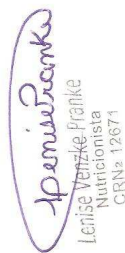 Lenise Pranke
Lenise Venzke Pranke
Nutricionista
CRN2 12671